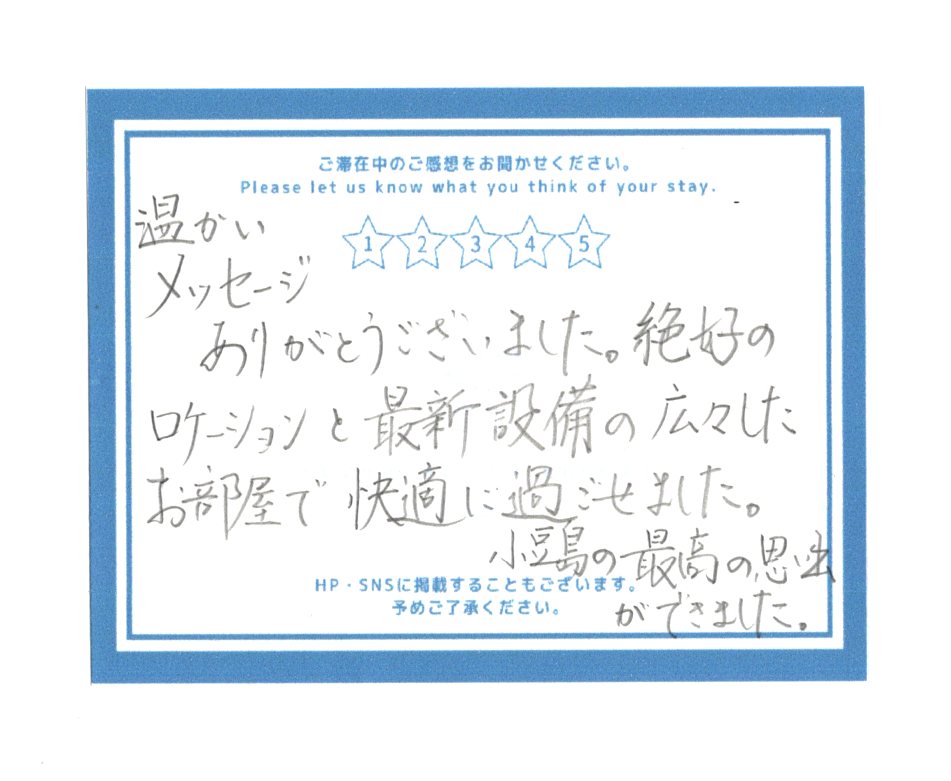 ご滞在中のご感想をお聞かせください。
Please let us know what you think of your stay.
1 2 3 4 5
温かい
メッセージ
ありがとうございました。絶好の
ロケーションと最新設備の広々した
お部屋で快適に過ごせました。
小豆島の最高の思い出
ができました。
HP・SNSに掲載することもございます。
予めご了承ください。